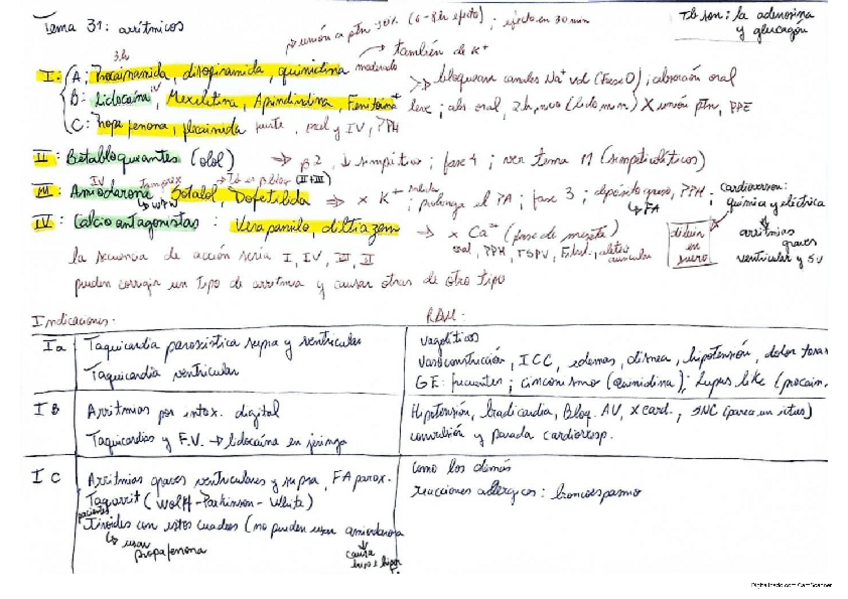 Tema 31: arítmicos
→ unión a ptn 90% (6-8h efecto); efecto en 30 min
Tb son: la adenosina
y glucagón
3h
→ también de K+
I: A: Procainamida, disopiramida, quinidina moderado
B: Lidocaína IV, Mexiletina, Aprindina, Fenitoína leve; abs oral, 2h,
C: propafenona, flecainida fuerte, oral y IV, PPH
→ bloquean canales Na+ vol (Fase 0); absorción oral
X unión ptn, PPE
II: Betabloqueantes (olol) → β2, ↓ simpático; fase 4; ver tema 11 (simpaticolíticos)
III: Amiodarona IV, Sotalol, Dofetilida → x K+; prolonga el PA; fase 3; depósito graso, PPH;
(II+III)
↳ WPW
↳ FA
Cardioversion:
química y eléctrica
↓
arritmias
graves
ventricular y SV
IV: Calcioantagonistas: Verapamilo, diltiazem → x Ca2+ (fase de meseta)
oral, PPH, TSPV,
diluir
en
suero
la secuencia de acción sería I, IV, III, II
pueden corregir un tipo de arritmia y causar otras de otro tipo
Indicaciones:
RAM:
Ia
Taquicardia paroxistica supra y ventricular
Taquicardia ventricular
vagolíticos
vasoconstricción, ICC, edemas, disnea, hipotensión, dolor
GE: frecuentes; cinconismo (quinidina); Lupus like (procain.
I B
Arritmias por intox. digital
Taquicardias y F.V. → lidocaína en jeringa
Hipotensión, bradicardia, Bloq. AV, x card., SNC (parece un ictus)
convulsión y parada cardioresp.
I C
Arritmias graves ventriculares y supra, FA parox.
Taquiarrit (Wolff-Parkinson-White)
pacientes
Tiroides con estos cuadros (no pueden usar amiodarona
↳ usar
propafenona
↓
causa
hipo e hiper
como los demás
reacciones alérgicas: broncoespasmo
Digitalizado con CamScanner